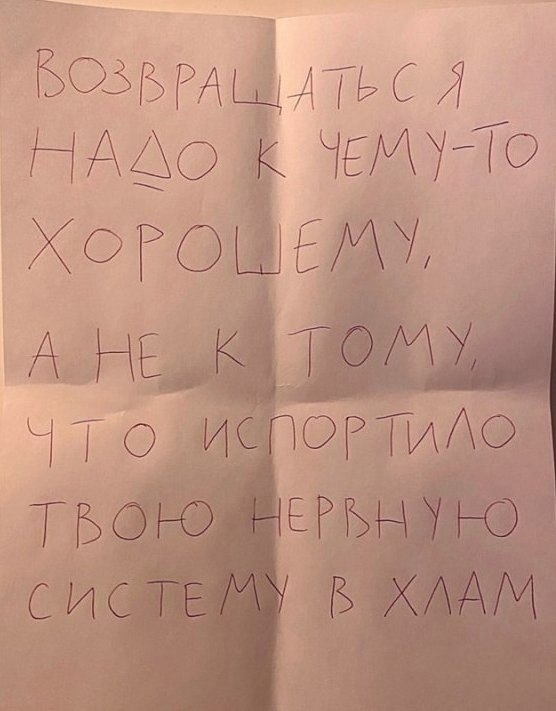 ВОЗВРАЩАТЬСЯ
НАДО К ЧЕМУ-ТО
ХОРОШЕМУ,
А НЕ К ТОМУ,
ЧТО ИСПОРТИЛО
ТВОЮ НЕРВНУЮ
СИСТЕМУ В ХЛАМ